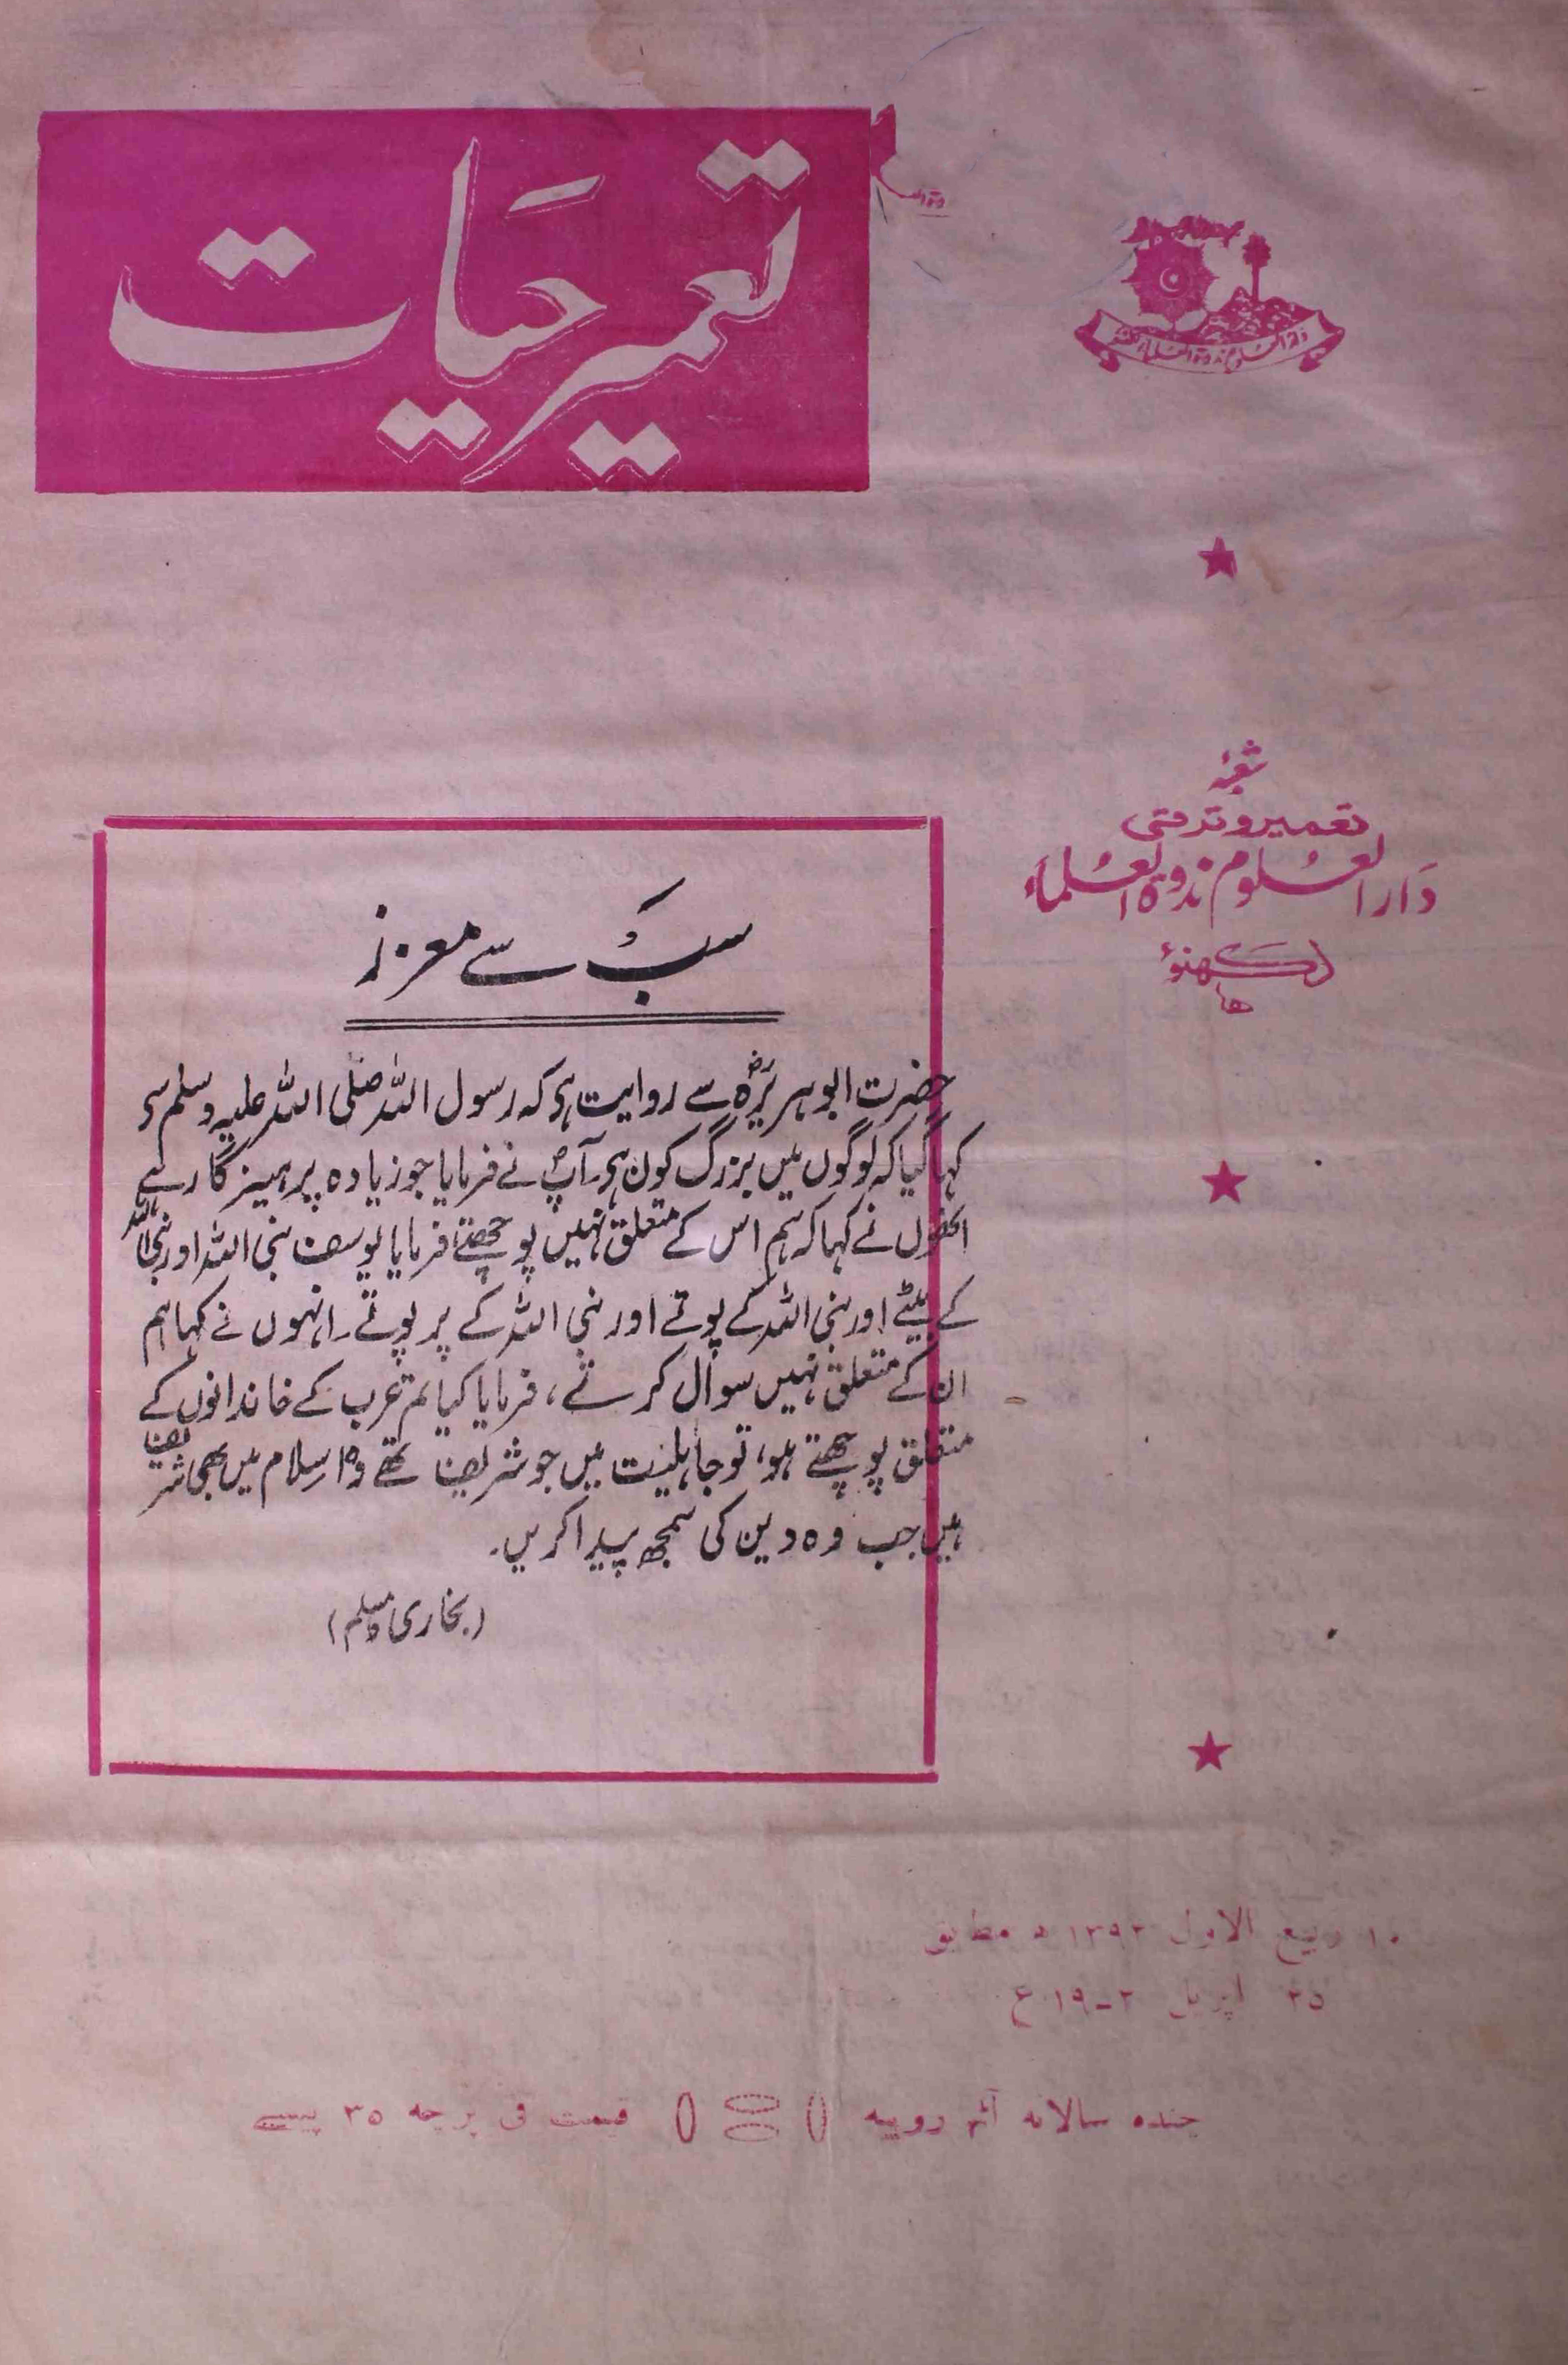 تعمیر حیات
دارالعلوم ندوۃ العلماء
شعبہ
تعمیر و ترقی
دار العلوم ندوۃ العلماء
لکھنؤ
سب سے معزز
حضرت ابوہریرہؓ سے روایت ہے کہ رسول اللہ صلی اللہ علیہ وسلم سے
کہا گیا کہ لوگوں میں بزرگ کون ہے۔ آپؐ نے فرمایا جو زیادہ پرہیزگار ہے
انھوں نے کہا کہ ہم اس کے متعلق نہیں پوچھتے فرمایا یوسف نبی اللہ اور نبی اللہ
کے بیٹے اور نبی اللہ کے پوتے اور نبی اللہ کے پرپوتے۔ انہوں نے کہا ہم
ان کے متعلق نہیں سوال کرتے، فرمایا کیا تم عرب کے خاندانوں کے
متعلق پوچھتے ہو، تو جاہلیت میں جو شریف تھے وہ اسلام میں بھی شریف
ہیں جب وہ دین کی سمجھ پیدا کریں۔
(بخاری و مسلم)
۱۰ ربیع الاول ۱۳۹۲ ھ مطابق
۲۵ اپریل ۱۹-۲ ع
چندہ سالانہ آٹھ روپیہ قیمت فی پرچہ ۳۵ پیسے